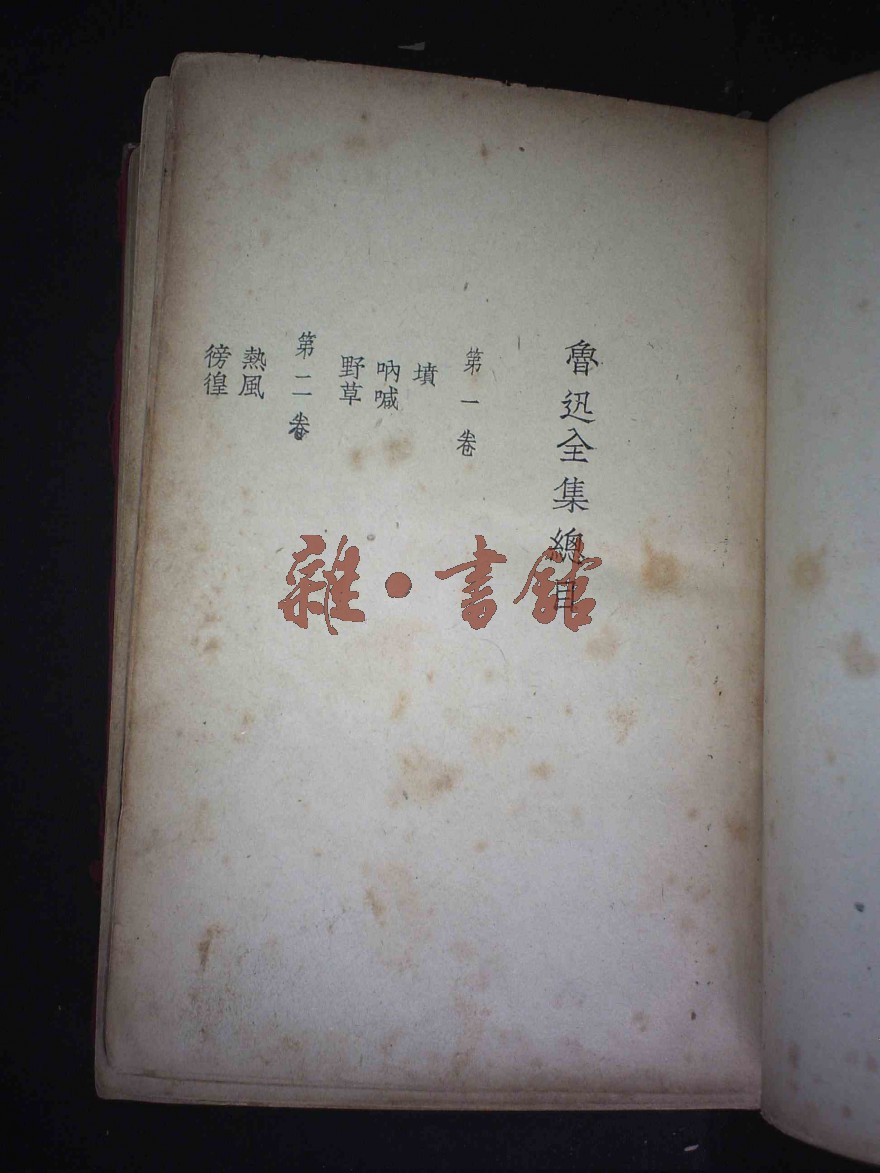 魯迅全集總目
第一卷
墳
吶喊
野草
第二卷
熱風
徬徨
雜·書館